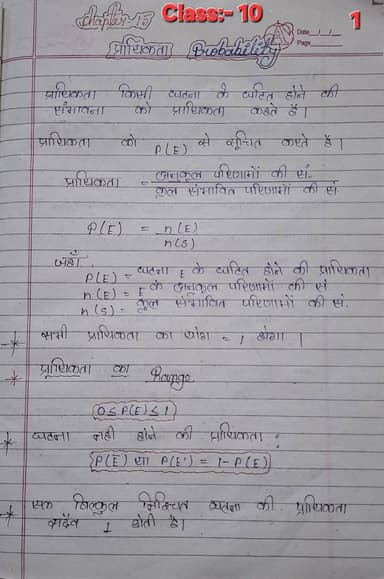 Chapter 15
Class:- 10
1
Date
Page
प्रायिकता Probability
प्रायिकता किसी घटना के घटित होने की
संभावना को प्रायिकता कहते हैं।
प्रायिकता को P(E) से सूचित करते हैं।
प्रायिकता = अनुकूल परिणामों की सं.
कुल संभावित परिणामों की सं
P(E) = n(E)
n(S)
जहाँ
P(E) = घटना E के घटित होने की प्रायिकता
n(E) = E के अनुकूल परिणामों की सं
n(S) = कुल संभावित परिणामों की सं.
सभी प्रायिकता का योग = 1 होगा।
प्रायिकता का Range
0≤P(E)≤1
घटना नही होने की प्रायिकता :
P(E̅) या P(E') = 1-P(E)
एक बिल्कुल निश्चित घटना की प्रायिकता
सदैव 1 होती है।